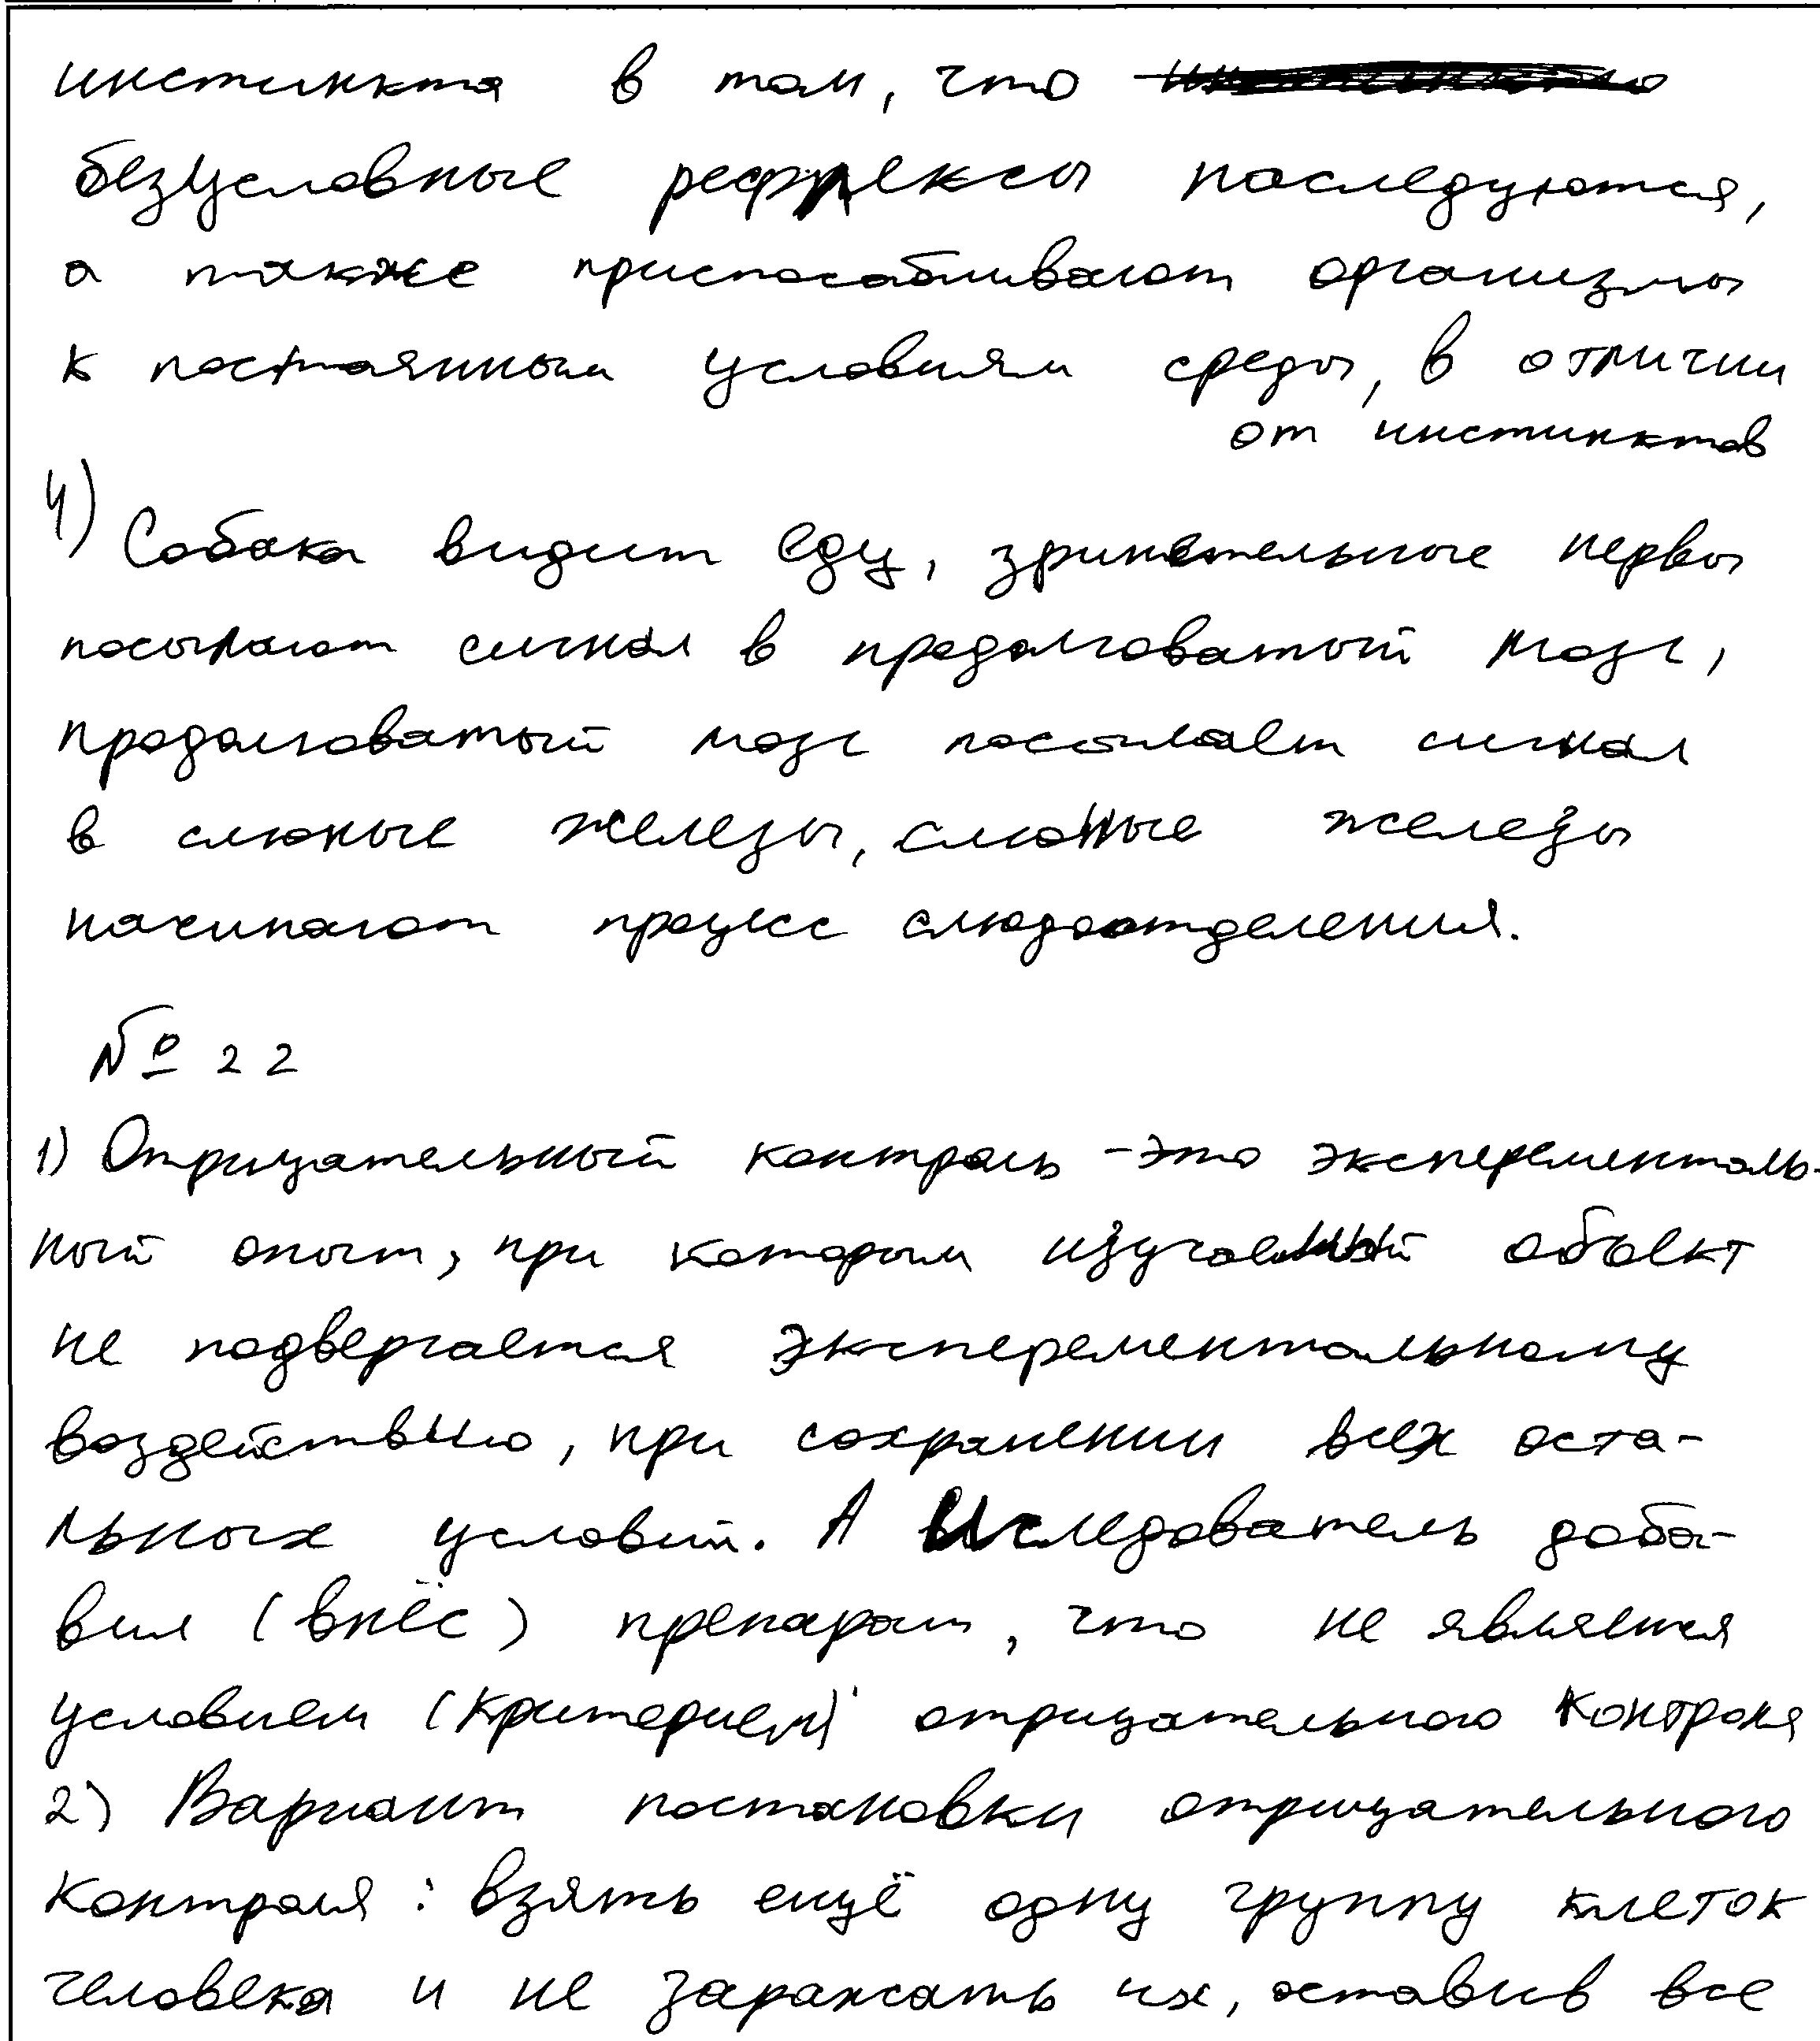 инстинкта в том, что
безусловные рефлексы последуются,
а также приспосабливают организмы
к постоянным условиям среды, в отличии
от инстинктов
4) Собака видит еду, зрительные нервы
посылают сигнал в продолговатый мозг,
продолговатый мозг посылает сигнал
в слюные железы, слюные железы
начинают процесс слюдоотделения.
№ 22
1) Отрицательный контроль - это эксперементаль-
ный опыт, при котором изучаемый объект
не подвергается эксперементальному
воздействию, при сохранении всех оста-
льных условий. А Исследователь доба-
вил (внёс) препарат, что не является
условием (критерием) отрицательного контроля
2) Вариант постановки отрицательного
контроля: взять ещё одну группу клеток
человека и не заражать их, оставив все